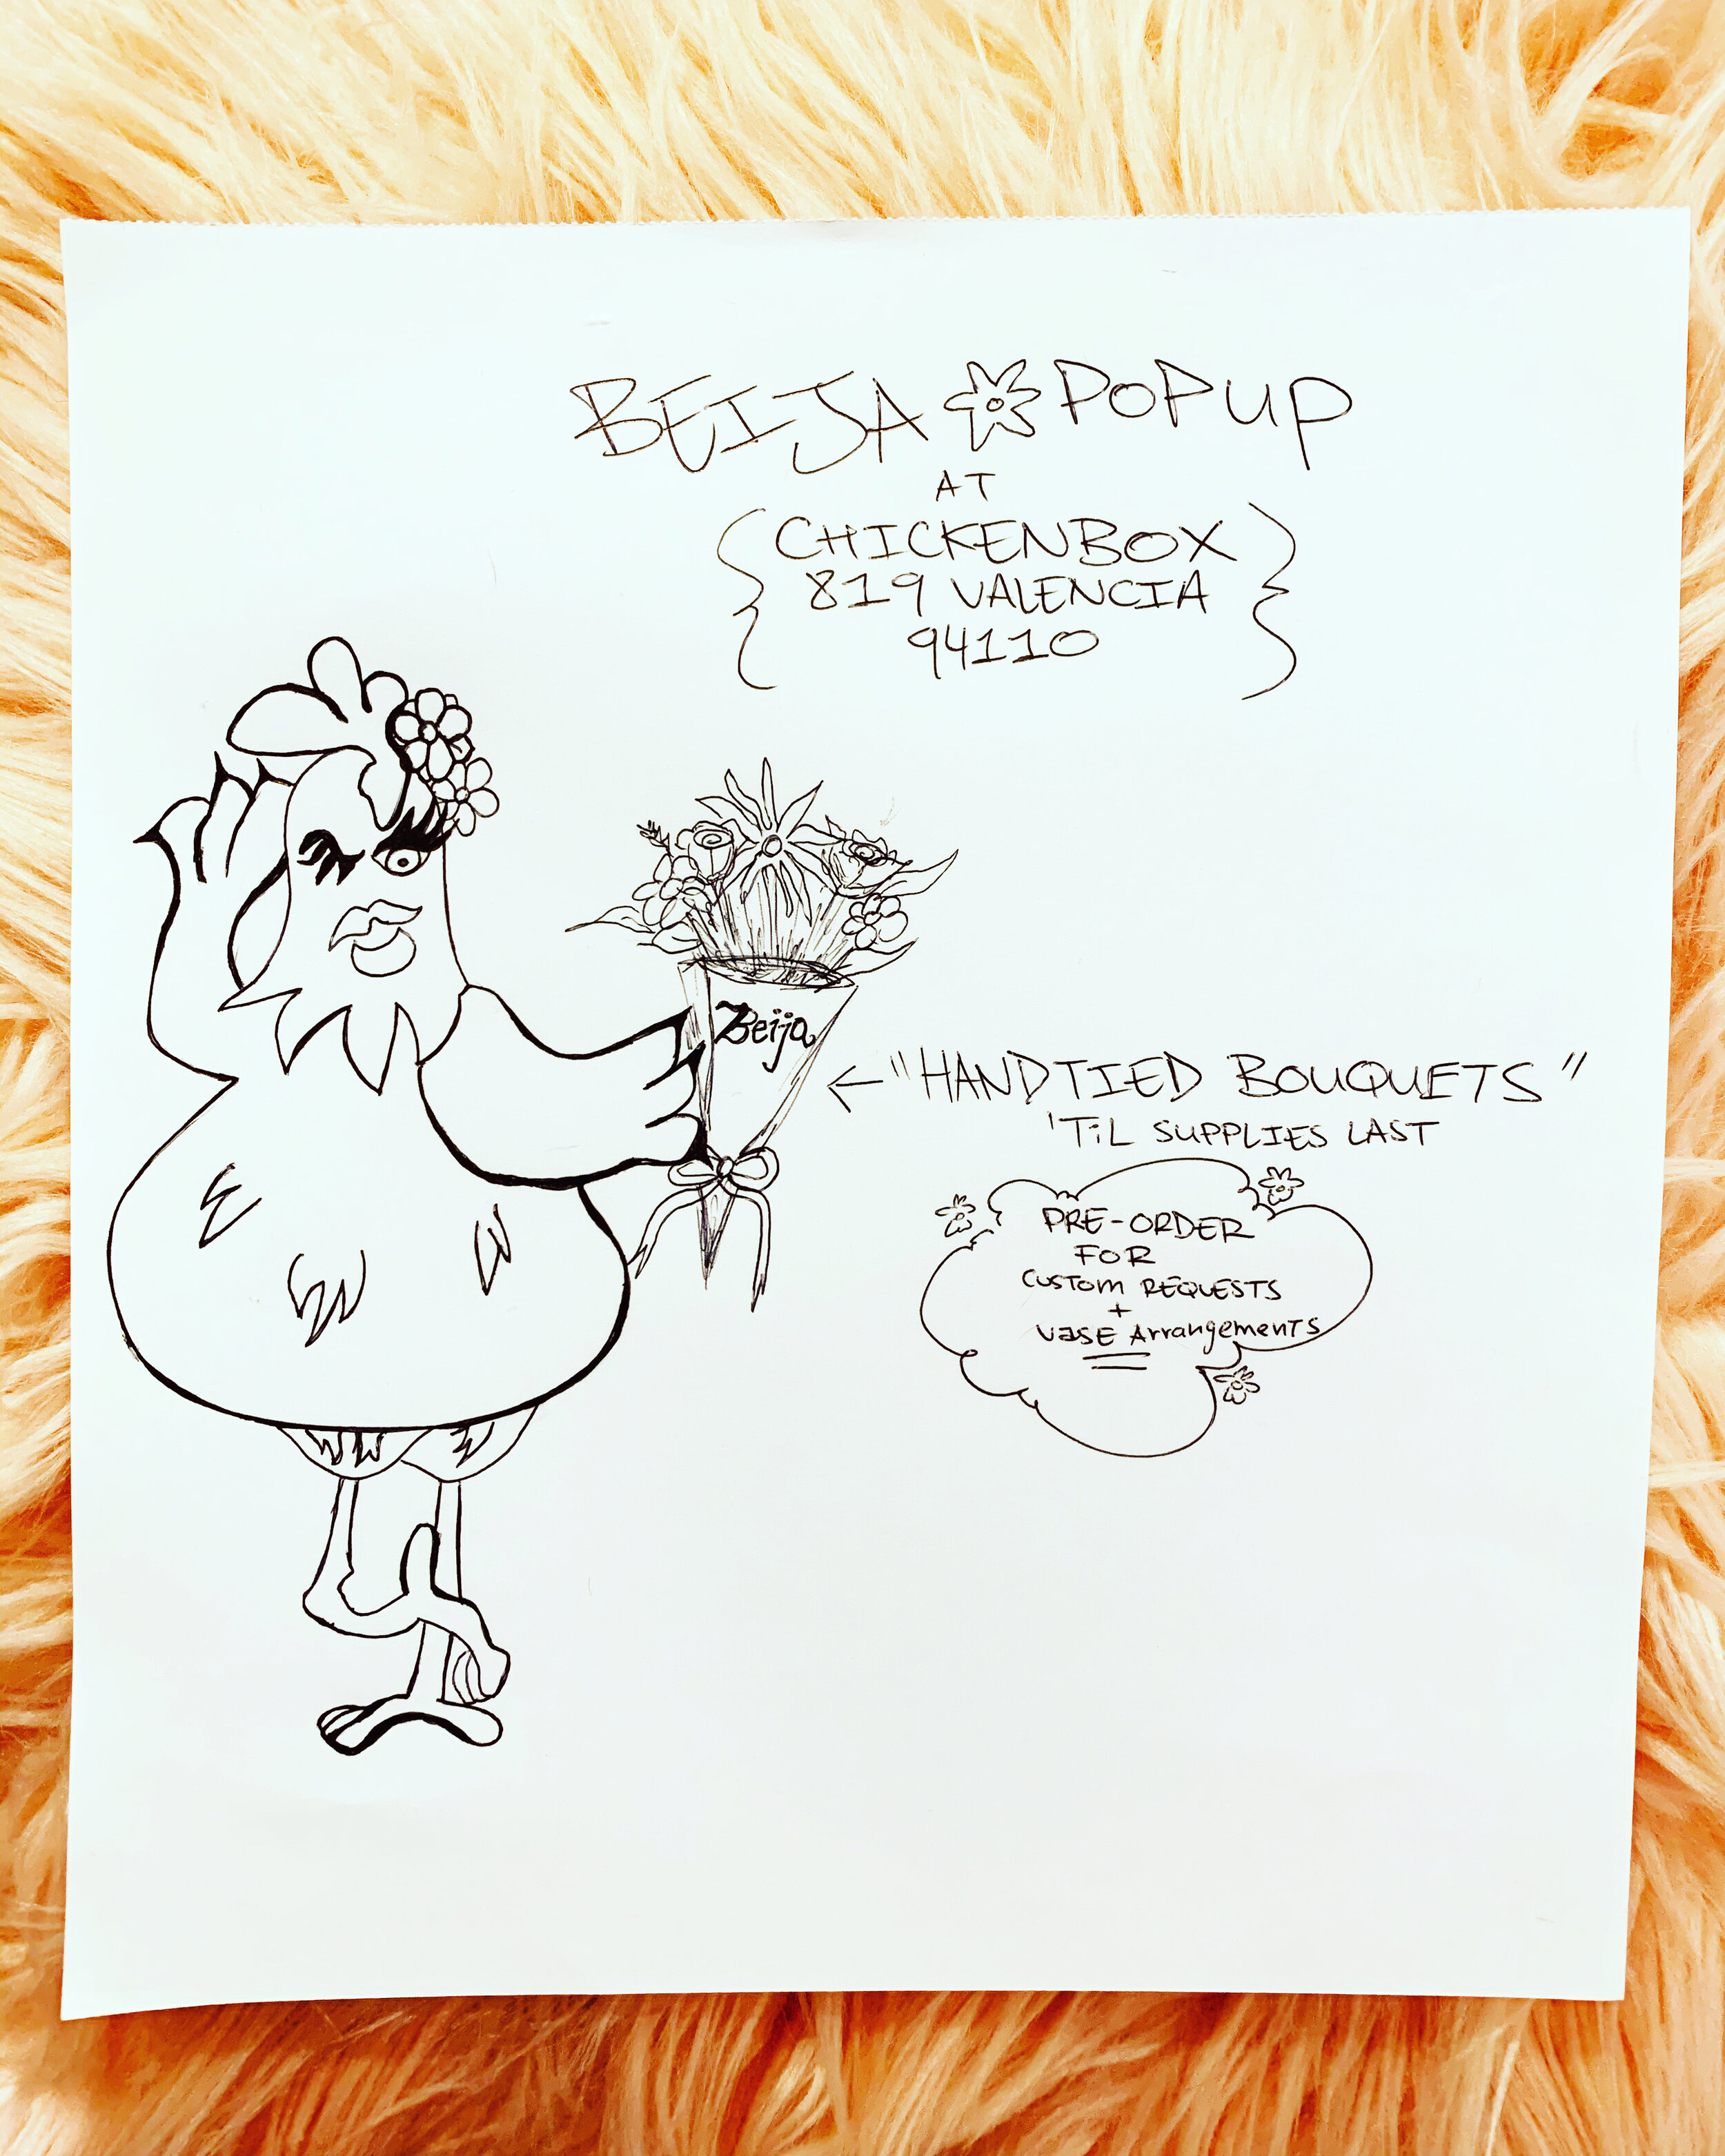 BEIJA POPUP
AT
CHICKENBOX
819 VALENCIA
94110
Beija
"HANDTIED BOUQUETS"
'TiL SUPPLIES LAST
PRE-ORDER
FOR
CUSTOM REQUESTS
+
VASE ArrangemenTS